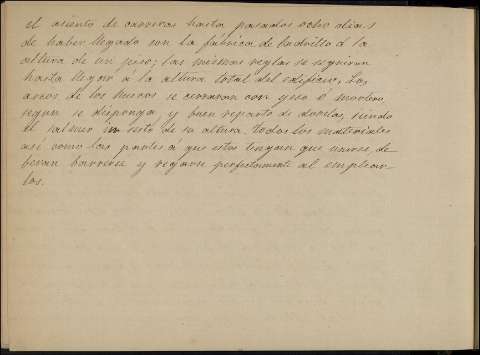 el asiento de carreras hasta pasados ocho dias
de haber llegado con la fábrica de ladrillo á la
altura de un piso; las mismas reglas se seguiran
hasta llegar á la altura total del edificio. Los
arcos de los huecos se cerraran con yeso ó mortero
segun se disponga y buen reparto de dovelas, siendo
el salmer un sesto de su altura. Todos los materiales
asi como las partes a que estos tengan que unirse, de-
beran barrerse y regarse perfectamente al emplear-
los.